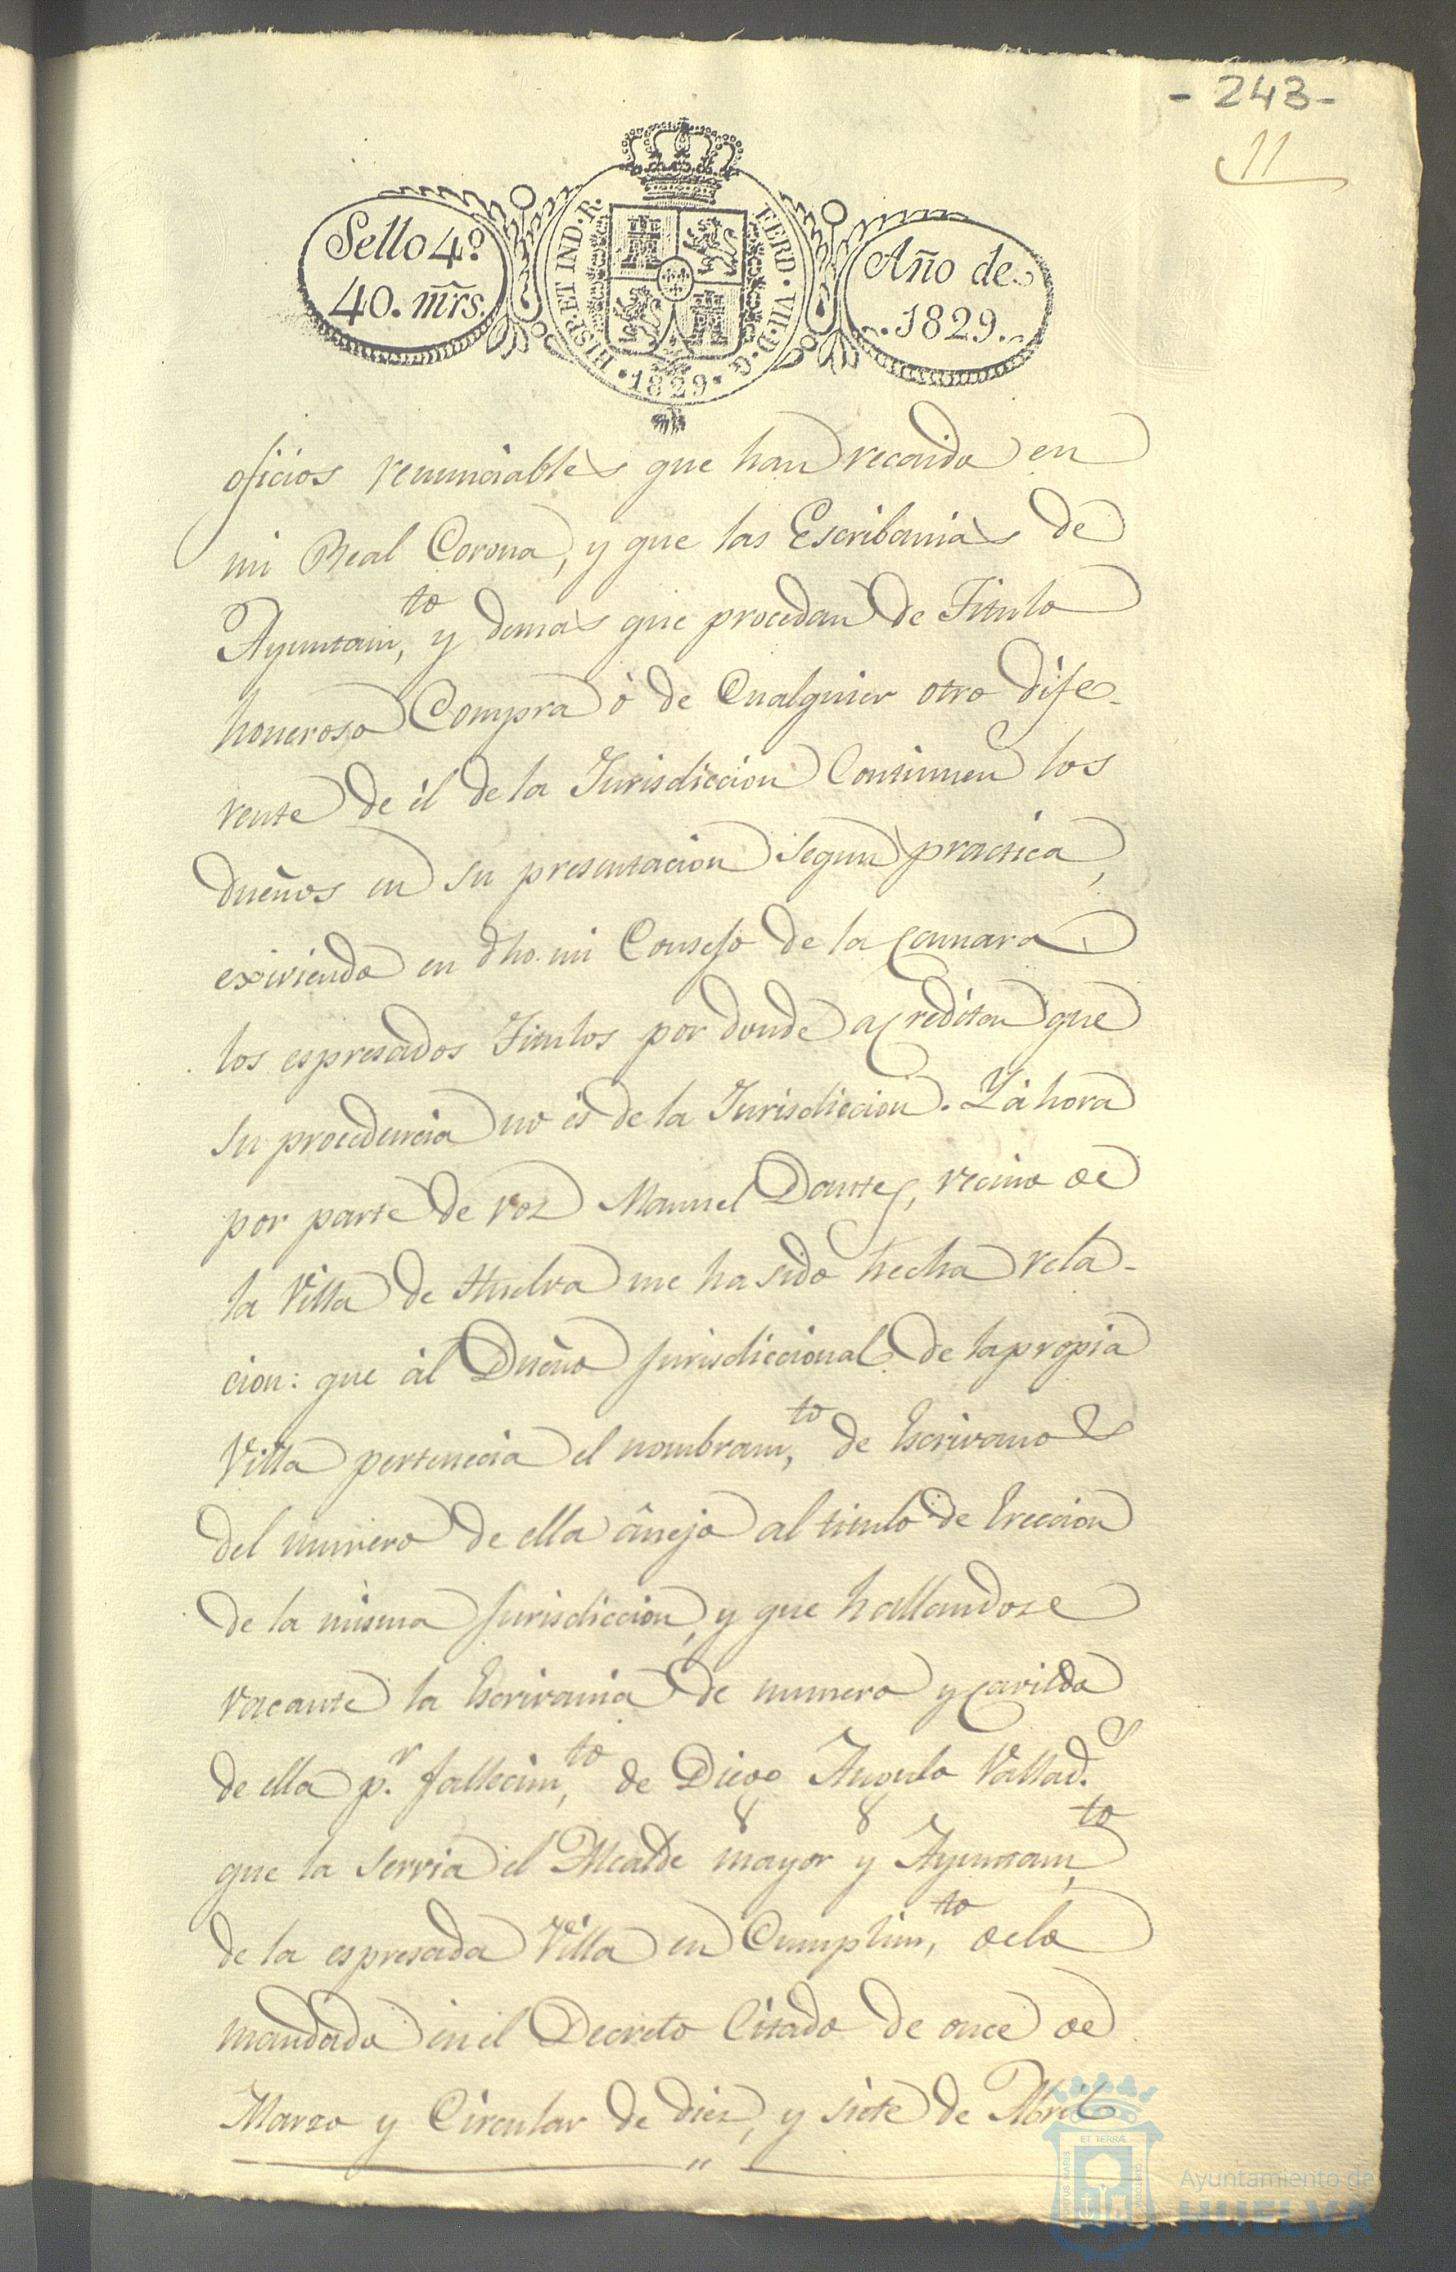 - 243 -
11
Sello 4º
40. mrs.
HISP. ET IND. R. FERD. VII. D. G. 1829
Año de
1829.
oficios renunciables que han recaido en
mi Real Corona, y que las Escribanias de
Ayuntamto, y demas que procedan de Titulo
honeroso Compra ó de Cualquier otro dife-
rente de él de la Jurisdiccion Continuen los
dueños en su presentacion segun practica,
exiviendo en dho. mi Consejo de la Camara
los espresados Titulos por donde acrediten que
su procedencia no és de la Jurisdiccion. Y ahora
por parte de voz Manuel Dantes, vecino de
la Villa de Huelva me ha sido hecha rela-
cion: que ál Dueño Jurisdiccional de la propia
Villa pertenecia el nombramto, de Escrivanos
del numero de ella ánejo al titulo de Ereccion
de la misma Jurisdiccion, y que hallandose
vacante la Escrivania de numero y cavildo
de ella pr. fallecimto, de Diego Angulo Vallads.
que la servia el Alcalde mayor y Ayuntamto,
de la espresada Villa en Cumplimto, de lo
mandado en el Decreto Citado de once de
Marzo y Circular de diez, y siete de Abril
PORTUS MARIS ET TERRÆ CUSTODIA
Ayuntamiento de
HUELVA